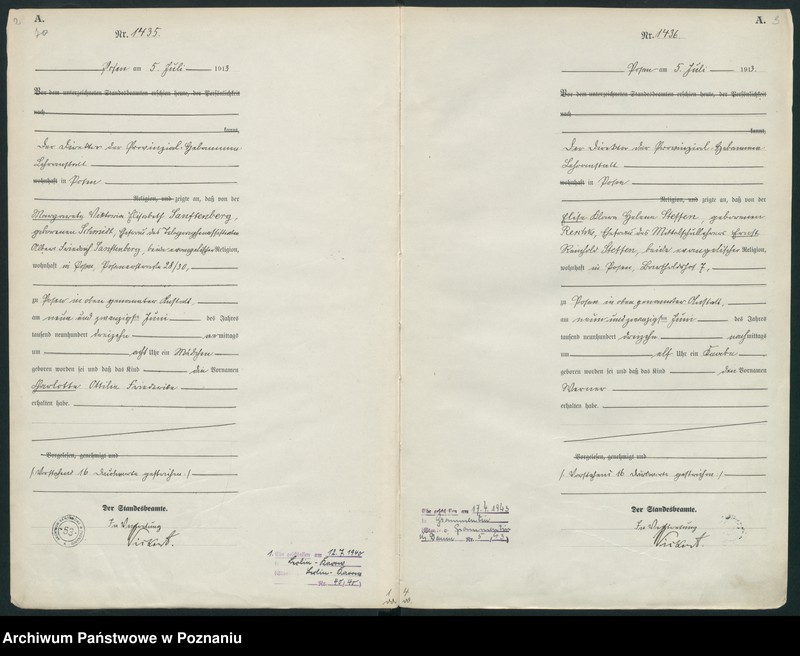 A.
Nr. 1435.
Posen am 5. Juli 1913
Vor dem unterzeichneten Standesbeamten erschien heute, der Persönlichkeit
nach
kannt,
Der Direktor der Provinzial-Hebammen-
Lehranstalt
wohnhaft in Posen
Religion, und zeigte an, daß von der
Margarete Viktoria Elisabeth Sanftenberg,
geborenen Schmidt, Ehefrau des
Albert Friedrich Sanftenberg, beide evangelischer Religion,
wohnhaft in Posen, Posenerstraße 28/30,
zu Posen in oben genannter Anstalt,
am neun und zwanzigsten Juni des Jahres
tausend neunhundert dreizehn vormittags
um acht Uhr ein Mädchen
geboren worden sei und daß das Kind die Vornamen
Charlotte Ottilie Friederike
erhalten habe.
Vorgelesen, genehmigt und
/ Vorstehend 16 Druckworte gestrichen /
Der Standesbeamte.
In Vertretung
1. Ehe geschlossen am 12.7.1940
Berlin-
Berlin-
Nr.
A. 3
Nr. 1436.
Posen am 5. Juli 1913.
Vor dem unterzeichneten Standesbeamten erschien heute, der Persönlichkeit
nach
kannt,
Der Direktor der Provinzial-Hebammen-
Lehranstalt
wohnhaft in Posen
Religion, und zeigte an, daß von der
Elise Klara Helene Steffen, geborenen
Ehefrau des Mittelschullehrers Ernst
Reinhold Steffen, beide evangelischer Religion,
wohnhaft in Posen, 7,
zu Posen in oben genannter Anstalt,
am neun und zwanzigsten Juni des Jahres
tausend neunhundert dreizehn nachmittags
um elf Uhr ein Knabe
geboren worden sei und daß das Kind den Vornamen
Werner
erhalten habe.
Vorgelesen, genehmigt und
/ Vorstehend 16 Druckworte gestrichen /
Der Standesbeamte.
In Vertretung
17.4.1943
Nr.
Archiwum Państwowe w Poznaniu